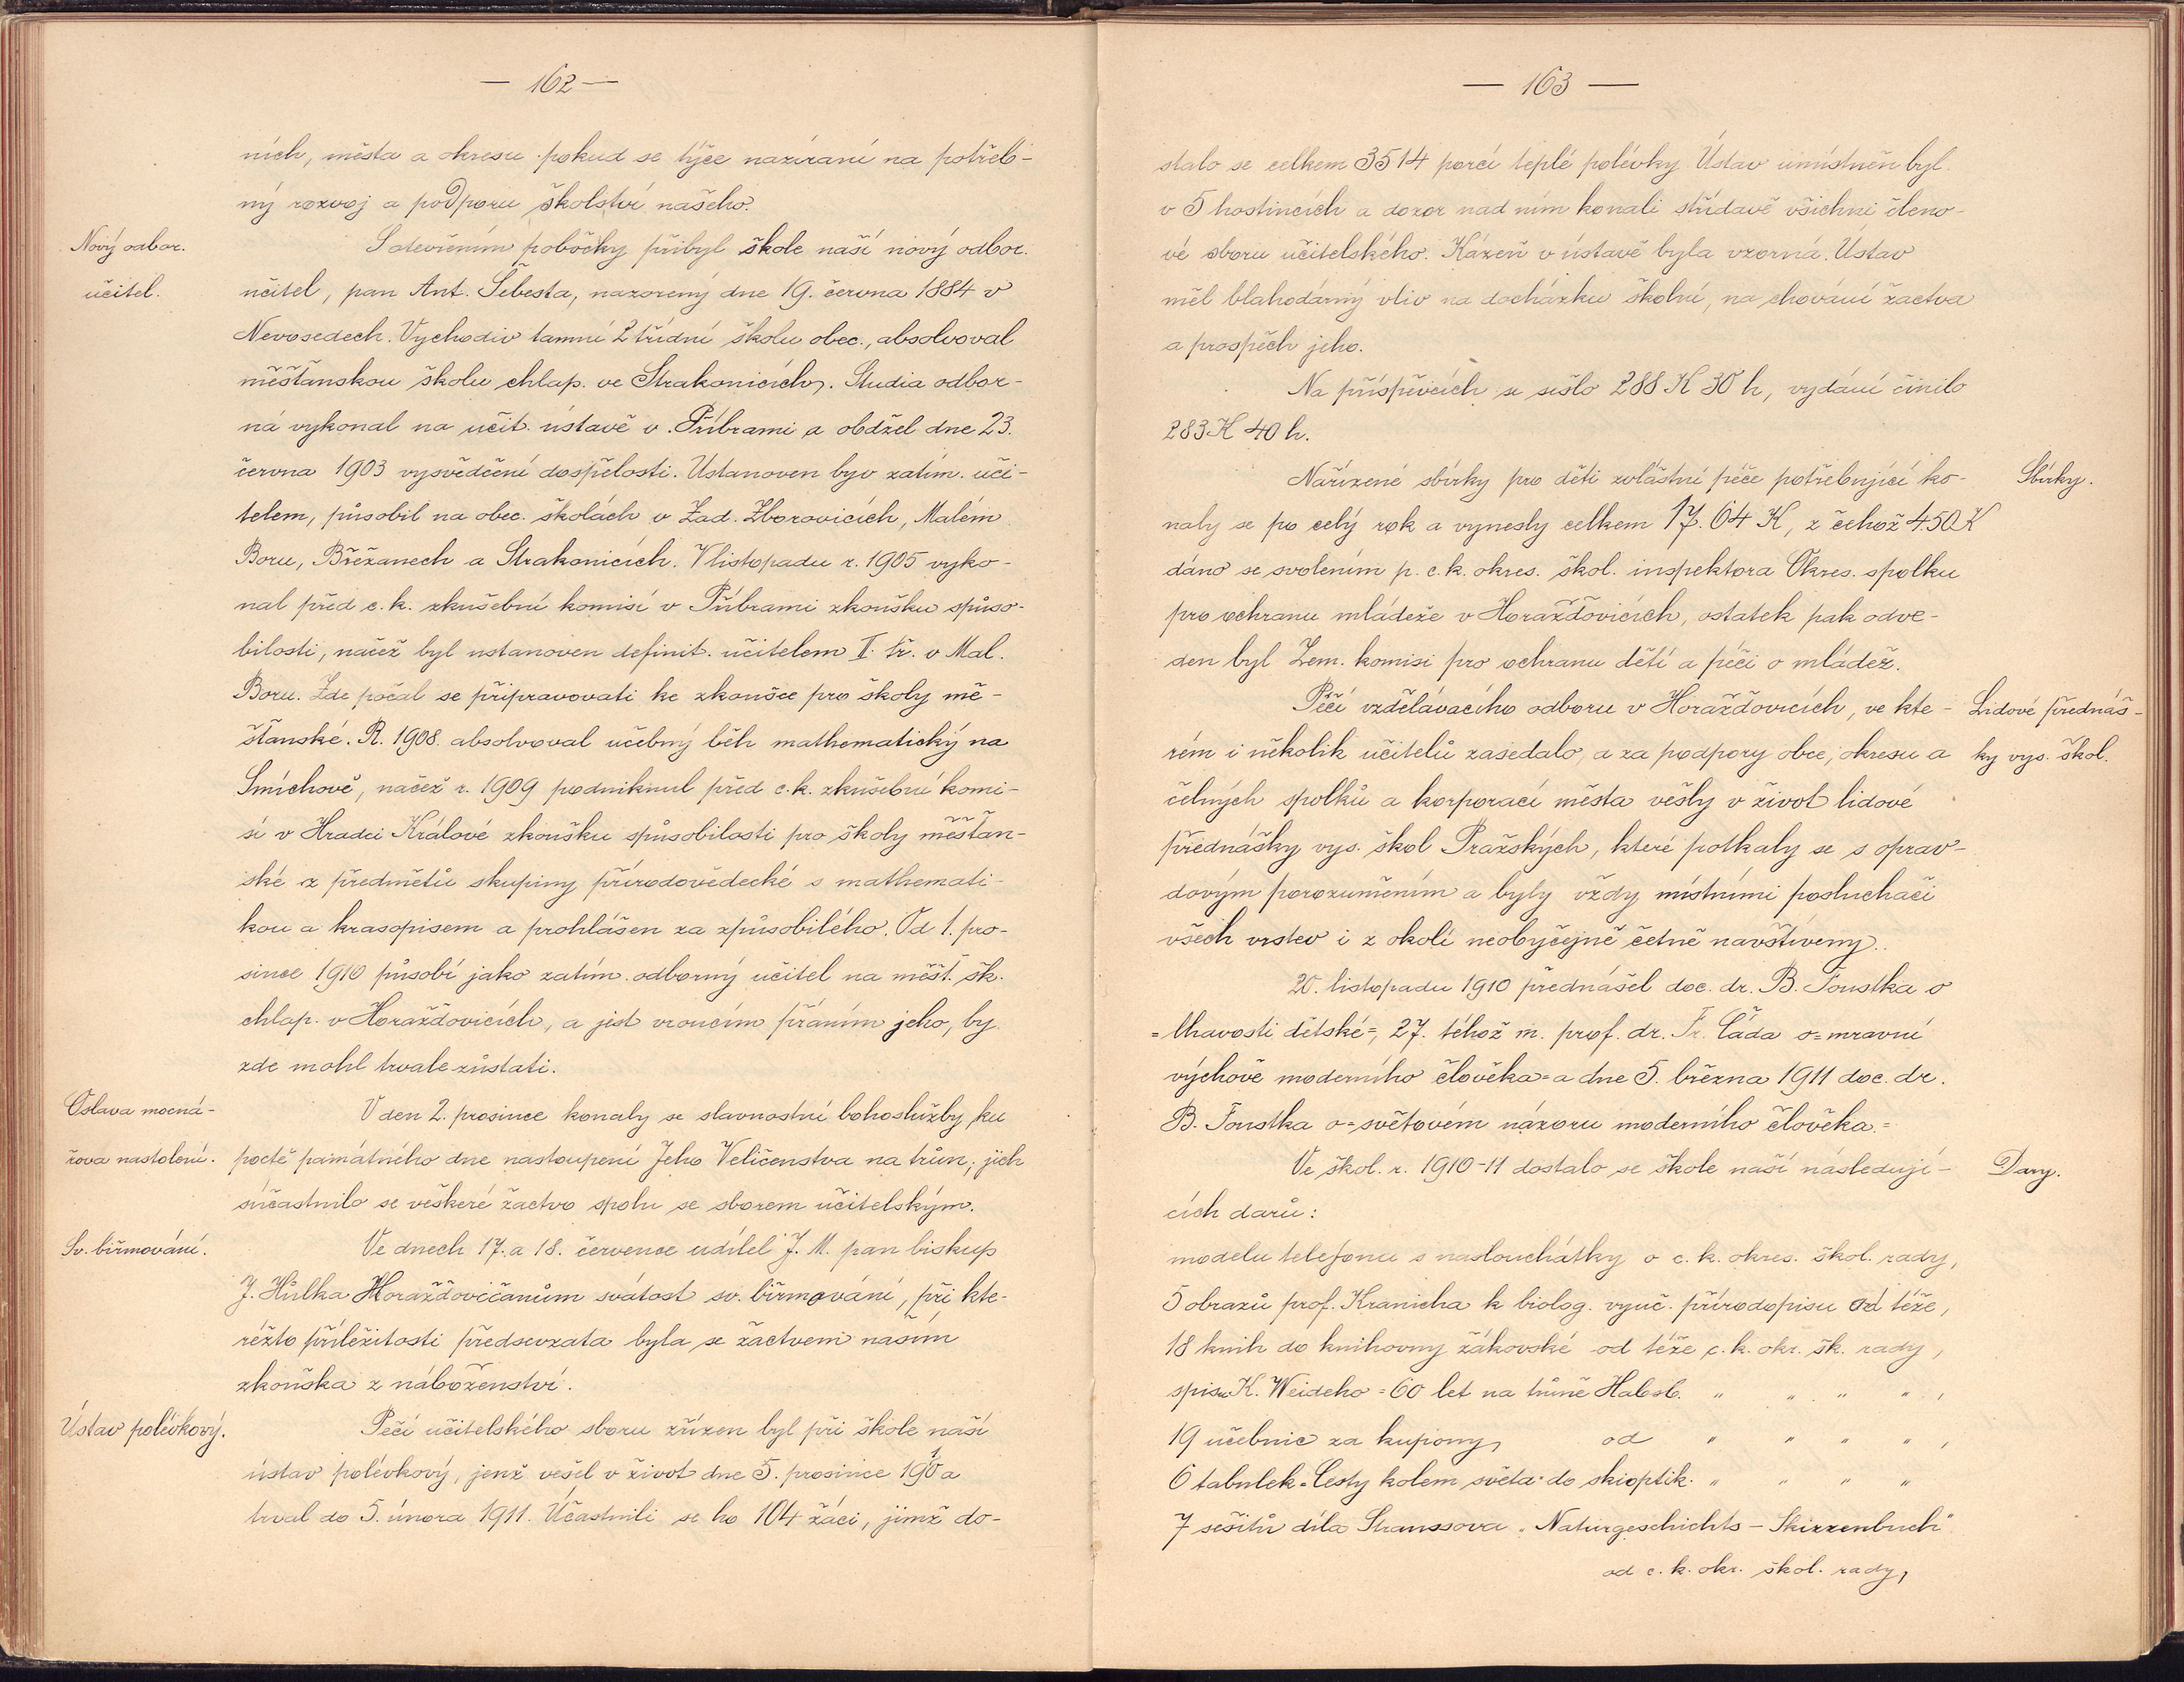 — 162 —
ních, města a okresu pokud se týče nazírání na potřeb-
ný rozvoj a podporu školství našeho.
Nový odbor.
učitel.
S otevřením pobočky přibyl škole naší nový odbor.
učitel, pan Ant. Šebesta, narozený dne 19. června 1884 v
Nevosedech. Vychodiv tamní 2 třídní školu obec., absolvoval
měšťanskou školu chlap. ve Strakonicích. Studia odbor-
ná vykonal na učit. ústavě v Příbrami a obdžel dne 23.
června 1903 vysvědčení dospělosti. Ustanoven byv zatím. uči-
telem, působil na obec. školách v Zad. Zborovicích, Malém
Boru, Břežanech a Strakonicích. V listopadu r. 1905 vyko-
nal před c. k. zkušební komisí v Příbrami zkoušku spůso-
bilosti, načež byl ustanoven definit. učitelem II. tř. v Mal.
Boru. Zde počal se připravovati ke zkoušce pro školy mě-
šťanské. R. 1908. absolvoval učebný běh mathematický na
Smíchově, načež r. 1909 podniknul před c. k. zkušební komi-
sí v Hradci Králové zkoušku spůsobilosti pro školy měšťan-
ské z předmětů skupiny přírodovědecké s mathemati-
kou a krasopisem a prohlášen za způsobilého. Od 1. pro-
since 1910 působí jako zatím. odborný učitel na měšť. šk.
chlap. v Horažďovicích, a jest vroucím přáním jeho, by
zde mohl trvale zůstati.
Oslava mocná-
řova nastolení.
V den 2. prosince konaly se slavnostní bohoslužby ku
poctě památného dne nastoupení Jeho Veličenstva na trůn; jich
súčastnilo se veškeré žactvo spolu se sborem učitelským.
Sv. biřmování.
Ve dnech 17. a 18. července udílel J. M. pan biskup
J. Hůlka Horažďovičanům svátost sv. biřmování, při kte-
réžto příležitosti předsevzata byla se žactvem naším
zkouška z náboženství.
Ústav polévkový.
Péčí učitelského sboru zřízen byl při škole naší
ústav polévkový, jenž vešel v život dne 5. prosince 1910 a
trval do 5. února 1911. Účastnili se ho 104 žáci, jimž do-
— 163 —
stalo se celkem 3514 porcí teplé polévky. Ústav umístněn byl
v 5 hostincích a dozor nad ním konali střídavě všichni členo-
vé sboru učitelského. Kázeň v ústavě byla vzorná. Ústav
měl blahodárný vliv na docházku školní, na chování žactva
a prospěch jeho.
Na příspěvcích se sešlo 288 K 30 h, vydání činilo
283 K 40 h.
Nařízené sbírky pro děti zvláštní péče potřebující ko-
Sbírky.
naly se po celý rok a vynesly celkem 17.64 K, z čehož 4.50 K
dáno se svolením p. c. k. okres. škol. inspektora Okres. spolku
pro ochranu mládeže v Horažďovicích, ostatek pak odve-
den byl Zem. komisi pro ochranu dětí a péči o mládež.
Péčí vzdělávacího odboru v Horažďovicích, ve kte-
Lidové přednáš-
ky vys. škol.
rém i několik učitelů zasedalo, a za podpory obce, okresu a
čelných spolků a korporací města vešly v život lidové
přednášky vys. škol Pražských, které potkaly se s oprav-
dovým porozuměním a byly vždy místními posluchači
všech vrstev i z okolí neobyčejně četně navštíveny.
20. listopadu 1910 přednášel doc. dr. B. Foustka o
„lhavosti dětské“, 27. téhož m. prof. dr. Fr. Čáda o „mravní
výchově moderního člověka“ a dne 5. března 1911 doc. dr.
B. Foustka o „světovém názoru moderního člověka.“
Ve škol. r. 1910-11 dostalo se škole naší následují-
Dary.
cích darů:
modelu telefonu s naslouchátky o c. k. okres. škol. rady,
5 obrazů prof. Kranicha k biolog. vyuč. přírodopisu od téže,
18 knih do knihovny žákovské od téže c. k. okr. šk. rady,
spisu K. Weideho „60 let na trůně Habsb. " " " " ,
19 učebnic za kupony, od " " " " ,
6 tabulek „Cesty kolem světa“ do skioptik. " " " "
7 sešitů díla Straussova „Naturgeschichts - Skizzenbuch“
od c. k. okr. škol. rady,